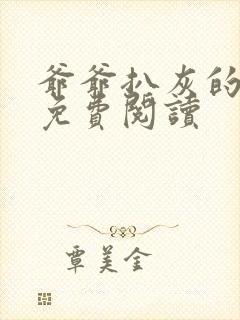 爺爺扒灰的
免費閱讀
覃美金